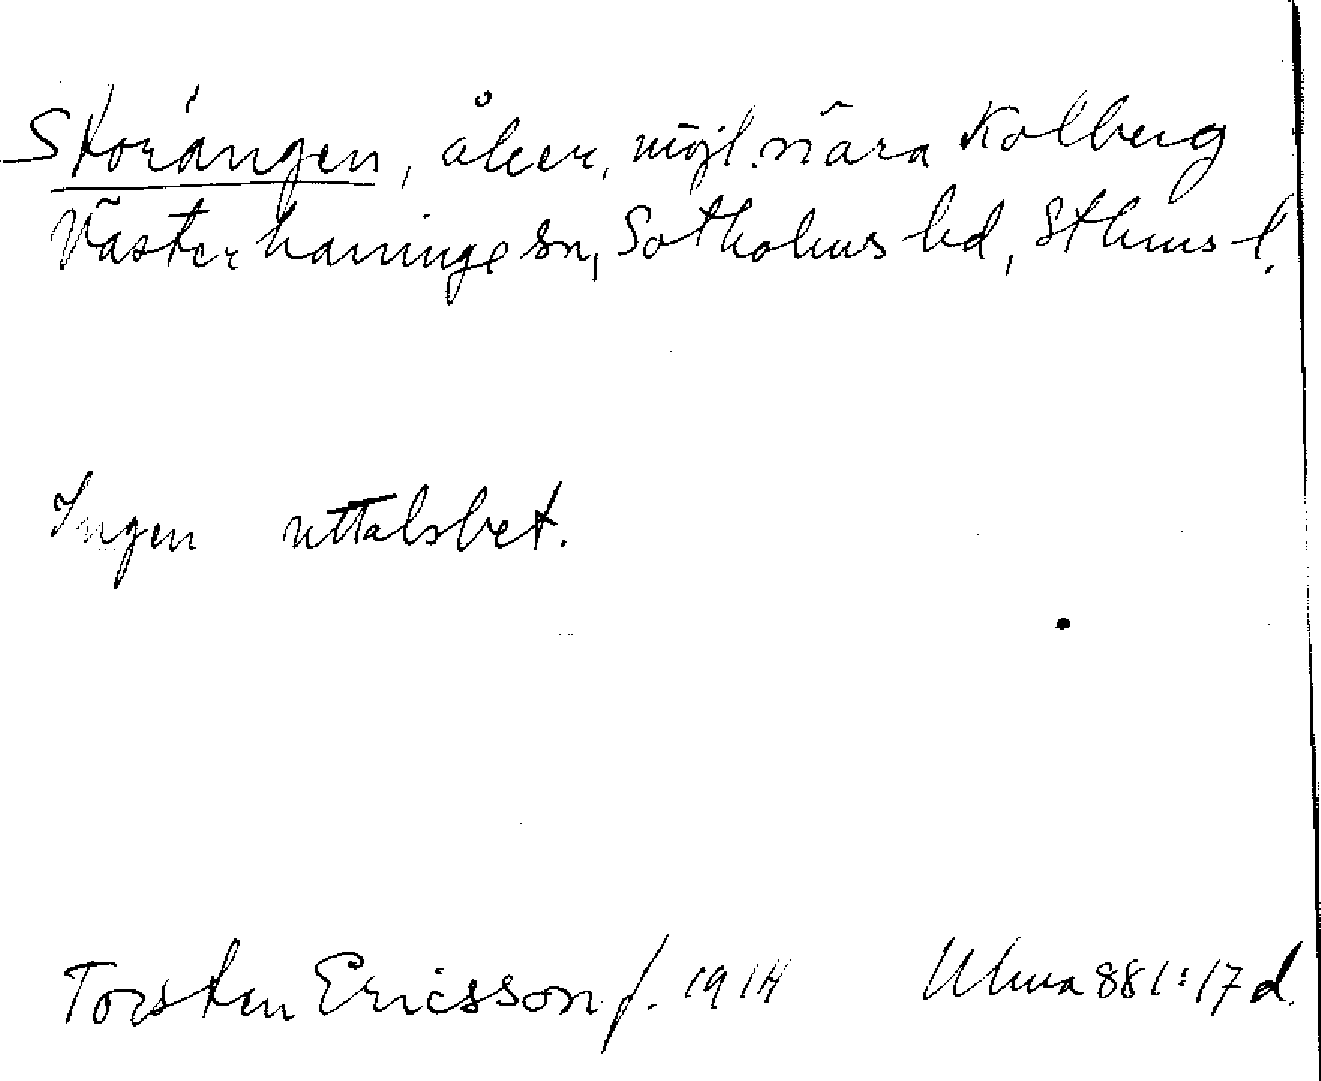 Storängen, åker, möjl. nära Kolberg
Västerhaninge sn, Sotholms hd, Sthms l.
Ingen uttalsbet.
Torsten Ericsson f. 1914 Ulma 881:17 d.